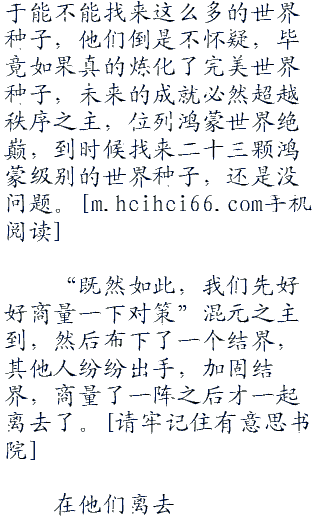 于能不能找来这么多的世界
种子，他们倒是不怀疑，毕
竟如果真的炼化了完美世界
种子，未来的成就必然超越
秩序之主，位列鸿蒙世界绝
巅，到时候找来二十三颗鸿
蒙级别的世界种子，还是没
问题。[m.hcihci66.com手机
阅读]
“既然如此，我们先好
好商量一下对策”混元之主
到，然后布下了一个结界，
其他人纷纷出手，加固结
界，商量了一阵之后才一起
离去了。[请牢记住有意思书
院]
在他们离去